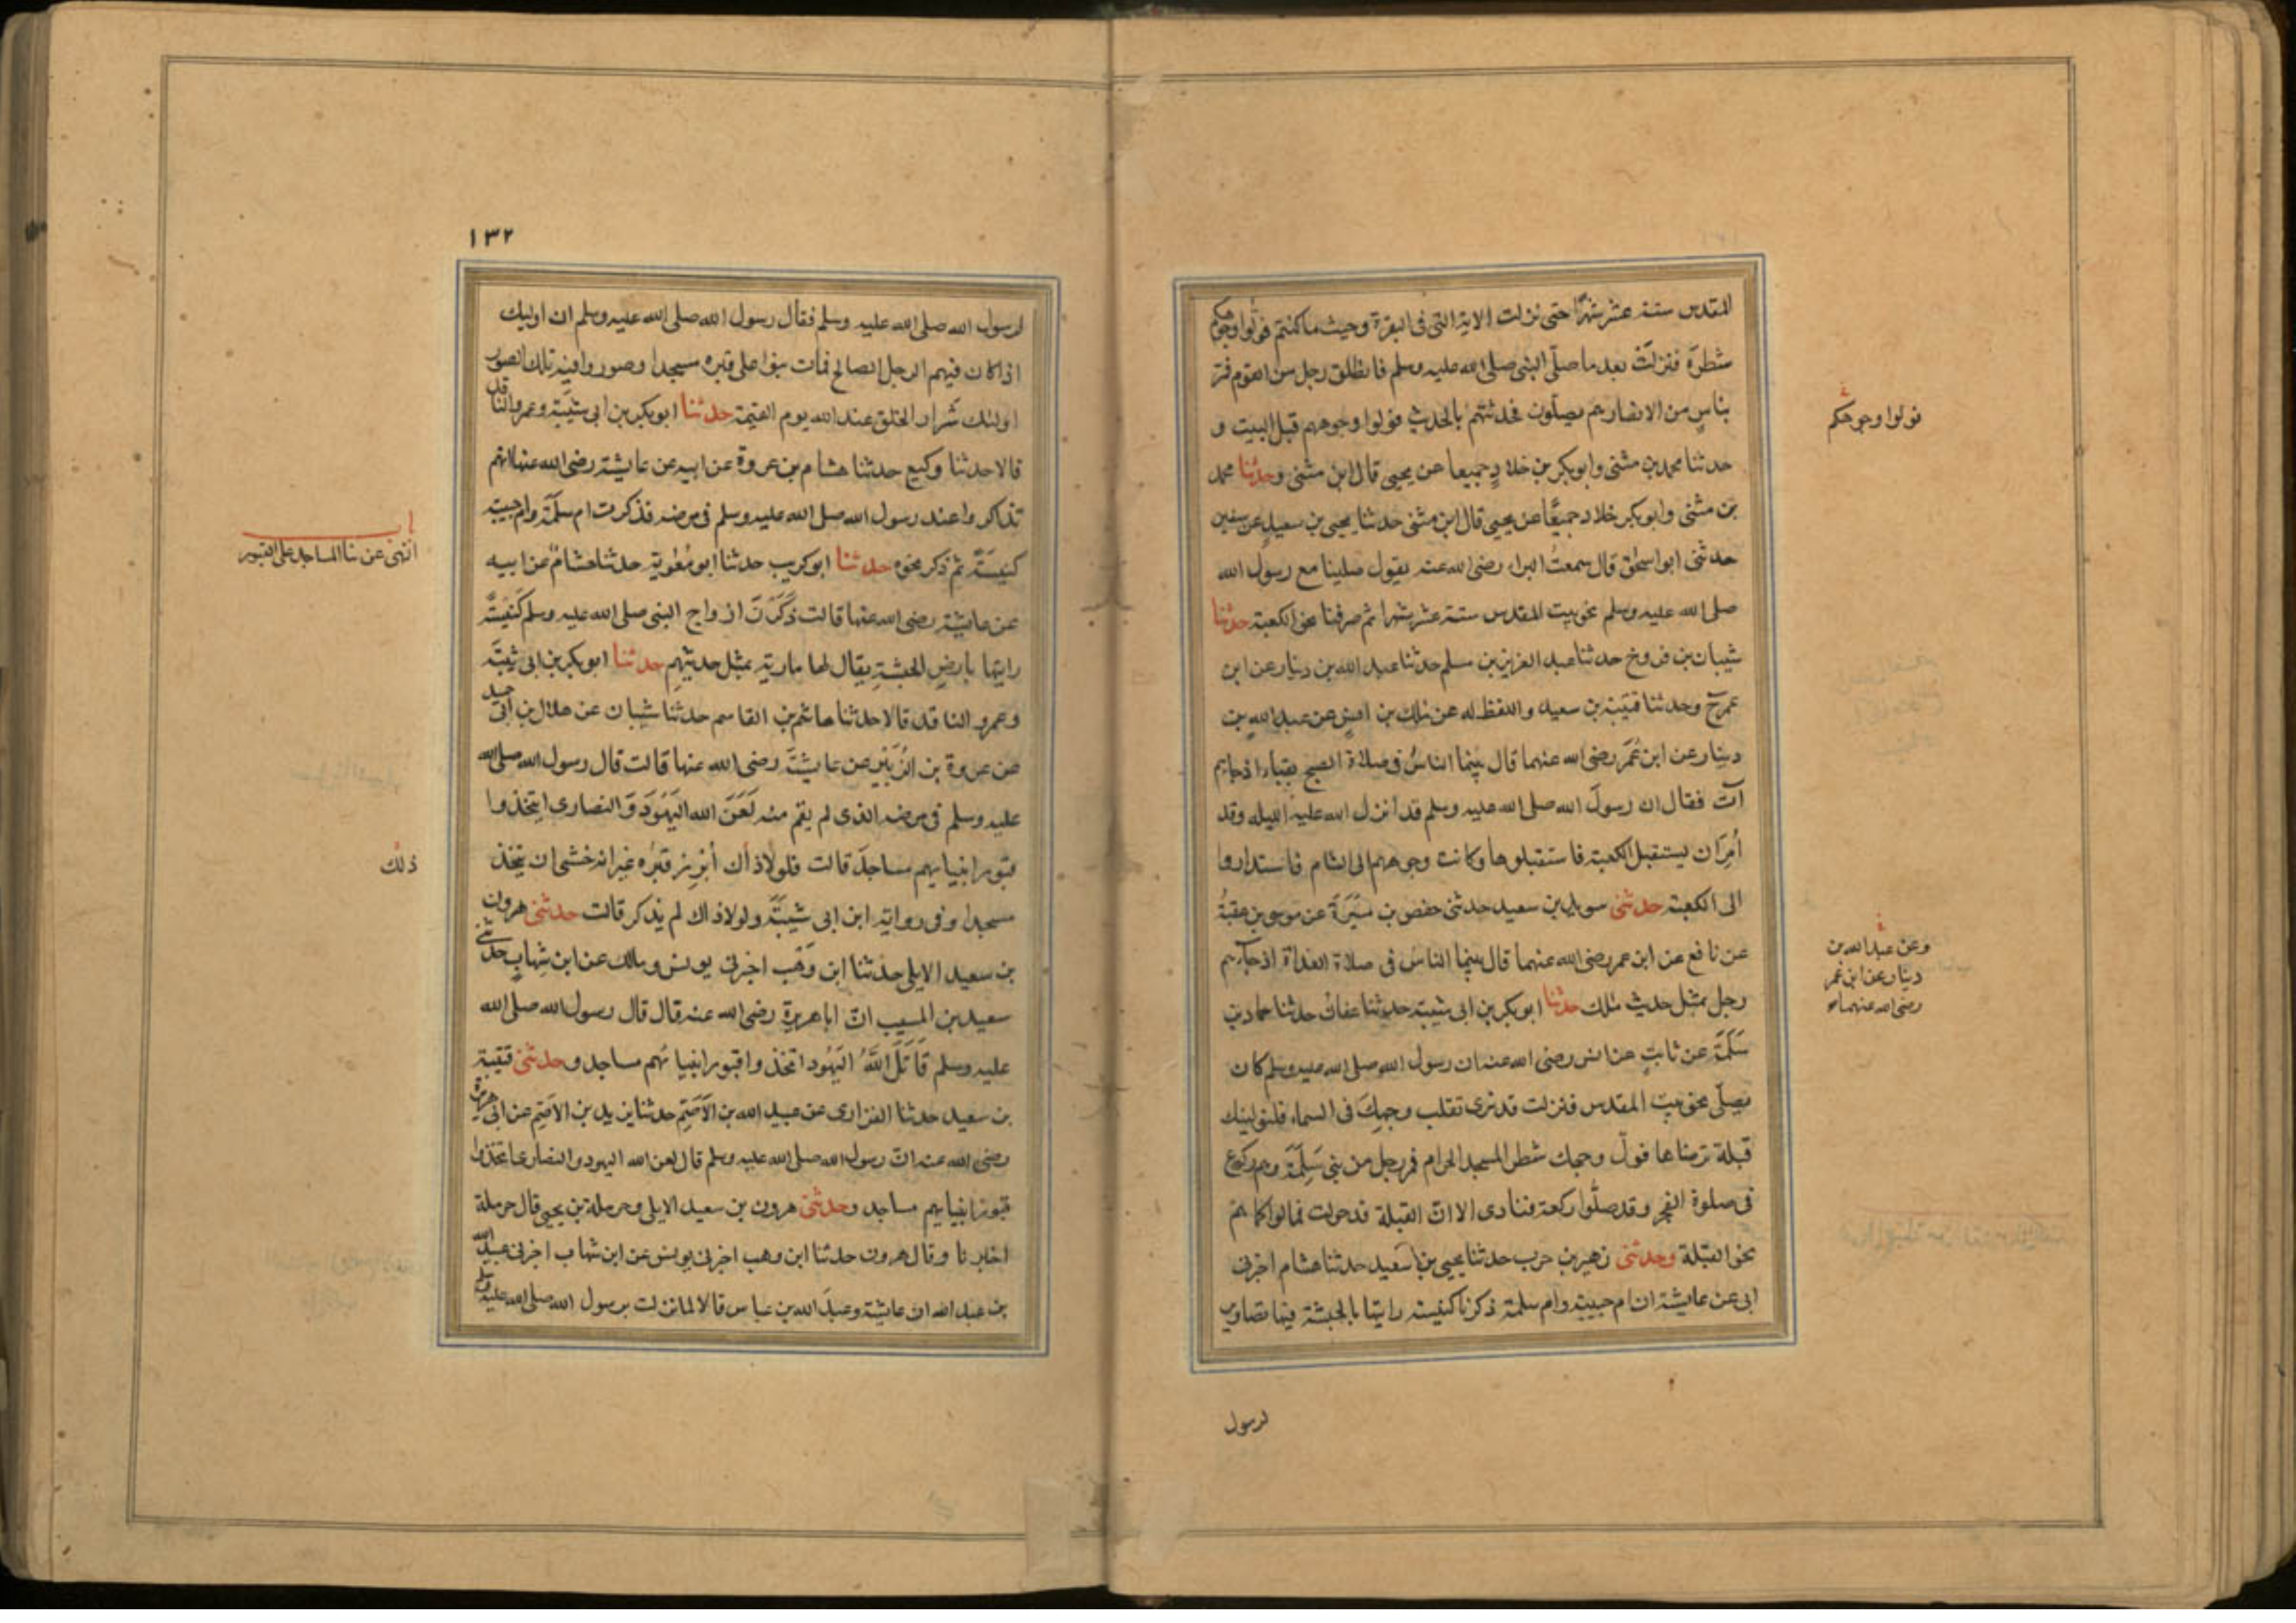 المقدس ستة عشر شهرًا حتى نزلت الاية التى فى البقرة وحيث ما كنتم فولوا وجوهكم
شطرَه فنزلَت بعد ما صلّى النبى صلى الله عليه وسلم فانطلق رجل من القوم فمَرّ
بناسٍ من الانصار وهم يصلّون فحدثهم بالحديث فولوا وجوههم قبل البيت و
حدثنا محمد بن مثنى وابو بكر بن خلادٍ جميعا عن يحيى قال ابن مثنى وحدثنا محمد
بن مثنى وابو بكر خلاد جميعًا عن يحيى قال ابن مثنى حدثنا يحيى بن سعيدٍ عن سفين
حدثنى ابو اسحٰق قال سمعتُ البراء رضى الله عنه يقول صلينا مع رسول الله
صلى الله عليه وسلم نحو بيت المقدس ستة عشر شهرا ثم صرفنا نحو الكعبة حدثنا
شيبان بن فروخ حدثنا عبد العزيز بن مسلم حدثنا عبد الله بن دينار عن ابن
عمر ح وحدثنا قتيبة بن سعيد واللفظ له عن مٰلك بن انسٍ عن عبد اللهِ بن
دينار عن ابن عُمَر رضى الله عنهما قال بينما الناسُ فى صلاة الصبح بقباء اذ جاءهم
آتٍ فقال ان رسولَ الله صلى الله عليه وسلم قد أنزل الله عليه الليلة وقد
أُمِرَ ان يستقبل الكعبة فاستقبلوها وكانت وجوههم الى الشام فاستداروا
الى الكعبة حدثنى سويد بن سعيد حدثنى حفص بن مَيْسَرَة عن موسى بن عقبةُ
عن نافع عن ابن عمر رضى الله عنهما قال بينما الناسُ فى صلاة الغداة اذ جآءهم
رجل بمثل حديث مٰلك حدثنا ابو بكر بن ابى شيبة حدثنا عفان حدثنا حماد بن
سَلَمَة عن ثابتٍ عن انس رضى الله عنه ان رسول الله صلى الله عليه وسلم كان
يصلّى نحو بيت المقدس فنزلت قد نرى تقلب وجهِكَ فى السماء فلنولينك
قبلة ترضاها فولّ وجهك شطر المسجد الحرام فمر رجل من بنى سَلِمَة وهم ركوع
فى صلوة الفجر وقد صلّوا ركعة فنادى الا انّ القبلة قد حولت فمالوا كما هم
نحو القبلة وحدثنى زهير بن حرب حدثنا يحيى بن سَعيد حدثنا هشام اخبرنى
ابى عن عايشة ان ام حبيبة وام سلمة ذكرنا كنيسة راينها بالحبشة فيها تصاوير
لرسول
فولوا وجوهكم
وعن عبد الله بن
دينار عن ابن عمر
رضى الله عنهما
١٣٢
لرسول الله صلى الله عليه وسلم فقال رسول الله صلى الله عليه وسلم ان اوليك
اذا كان فيهم الرجل الصالح فمات بنوا على قبره مسجدا وصوروا فيه تلك الصور
اولئك شرار الخلق عند الله يوم القيمة حدثنا ابو بكر بن ابى شيبَة وعمرو الناقد
قالا حدثنا وكيع حدثنا هشام بن عروة عن ابيه عن عايشة رضى الله عنها انهم
تذاكروا عند رسول الله صلى الله عليه وسلم فى مرضه فذكرت ام سلَمَة وام حبيبة
كنيسَةً ثم ذكر نحوه حدثنا ابو كريب حدثنا ابو مُعٰوية حدثنا هشامٌ عن ابيه
عن عايشة رضى الله عنها قالت ذَكَرْنَ ازواج النبى صلى الله عليه وسلم كَنيسةً
راينها بارضِ الحبشةِ يقال لها مارية بمثل حديثهِم حدثنا ابو بكر بن ابى شيبَة
وعمرو الناقد قالا حدثنا هاشم بن القاسم حدثنا شيبان عن هلال بن ابى حميد
عن عروة بن الزُبَيْرِ عن عايشَة رضى الله عنها قالت قال رسول الله صلى الله
عليه وسلم فى مرضه الذى لم يقم منه لَعَنَ الله اليَهُودَ وَالنصارى اتخذوا
قبور انبيايهم مساجدَ قالت فلولا ذاك أبْرِز قَبْرُه غير انه خشى ان يتخذ
مسجدا وفى رواية ابن ابى شيبَة ولولا ذاك لم يذكر قالت حدثنى هرون
بن سعيد الايلى حدثنا ابن وَهْب اخبرنى يونس ومالك عن ابن شِهابٍ حدثنى
سعيد بن المسيب انّ ابا هريرة رضى الله عنه قال قال رسول الله صلى الله
عليه وسلم قَاتَلَ اللَّهُ اليَهُود اتخذوا قبور انبيائهم مساجد وحدثنى قتيبة
بن سعيد حدثنا الفزارى عن عبيد الله بن الاَصَمّ حدثنا يزيد بن الاَصَمّ عن ابى هريرة
رضى الله عنه انّ رسول الله صلى الله عليه وسلم قال لعن الله اليهود والنصارى اتخذوا
قبور انبيايهم مساجد وحدثنى هرون بن سعيد الايلى وحرملة بن يحيى قال حرملة
اخبرنا وقال هرون حدثنا ابن وهب اخبرنى يونس عن ابن شهاب اخبرنى عبيد الله
بن عبد الله ان عايشة وعبدَ الله بن عباس قالا لما نزلت برسول الله صلى الله عليه وسلم
باب
النهى عن بنا المساجد على القبور
ذلك